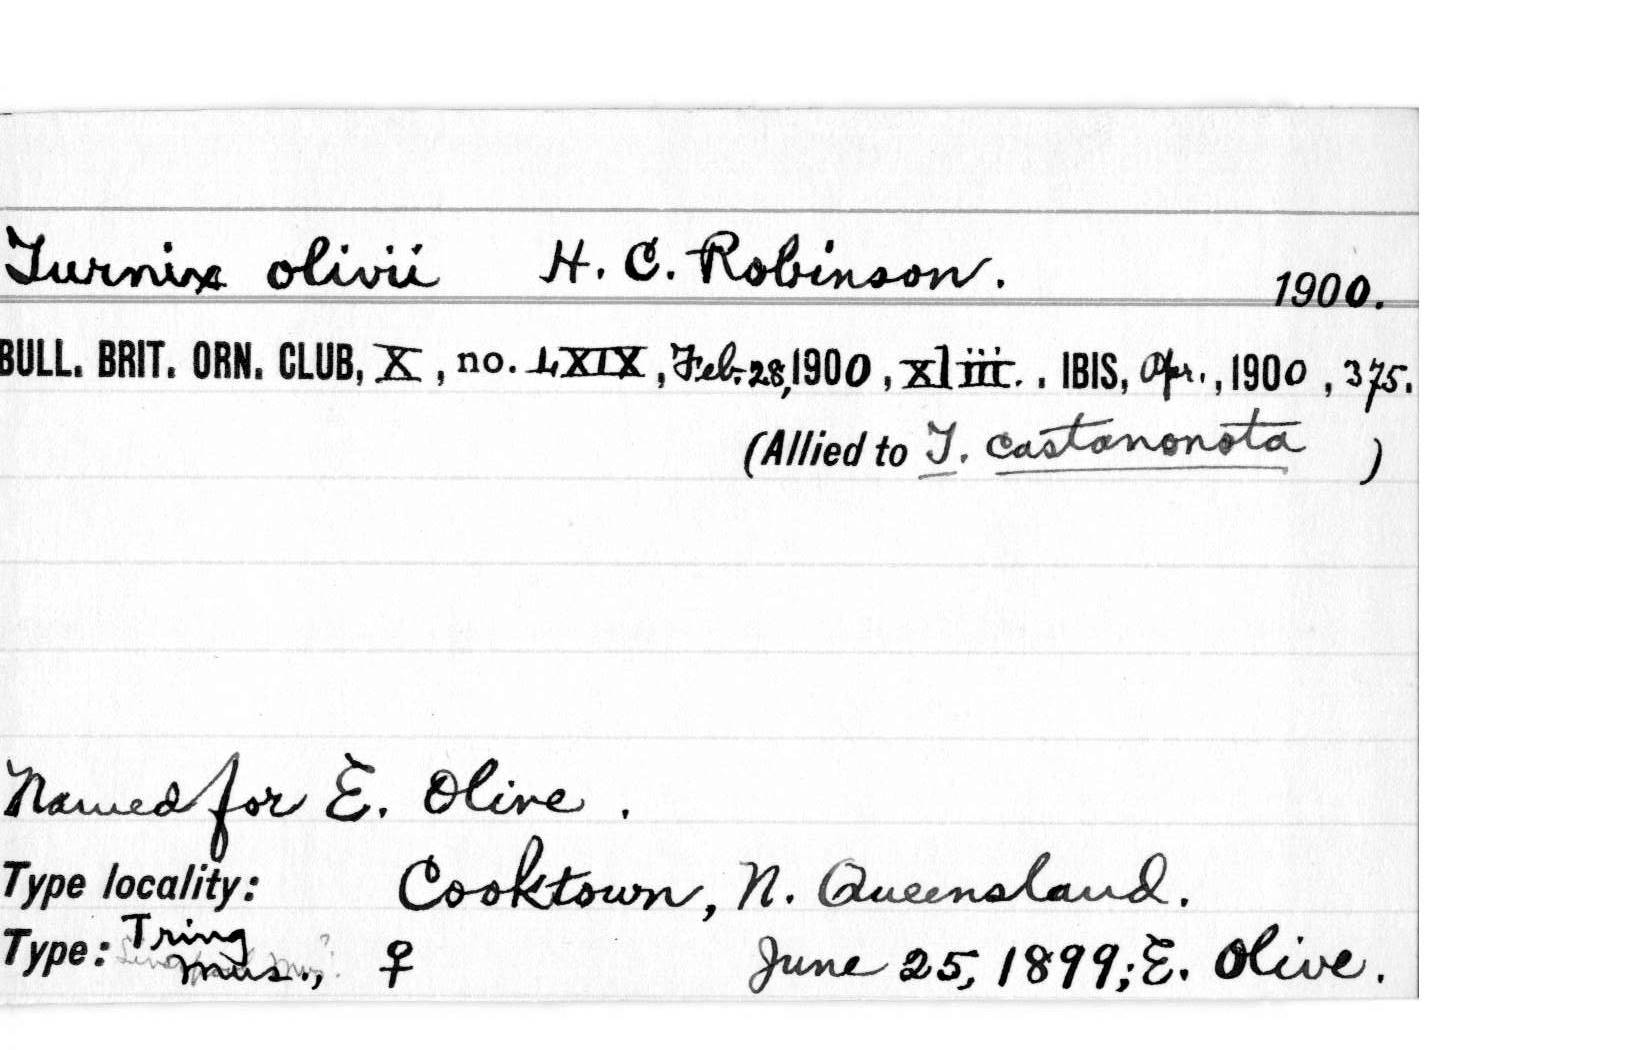 Turnix olivii H. C. Robinson. 1900.
BULL. BRIT. ORN. CLUB, X, no. LXIX, Feb. 28, 1900, xliii. . IBIS, Apr., 1900, 375.
(Allied to T. castanonota )
Named for E. Olive .
Type locality: Cooktown, N. Queensland.
Type: Tring
Mus., ♀ June 25, 1899; E. Olive.